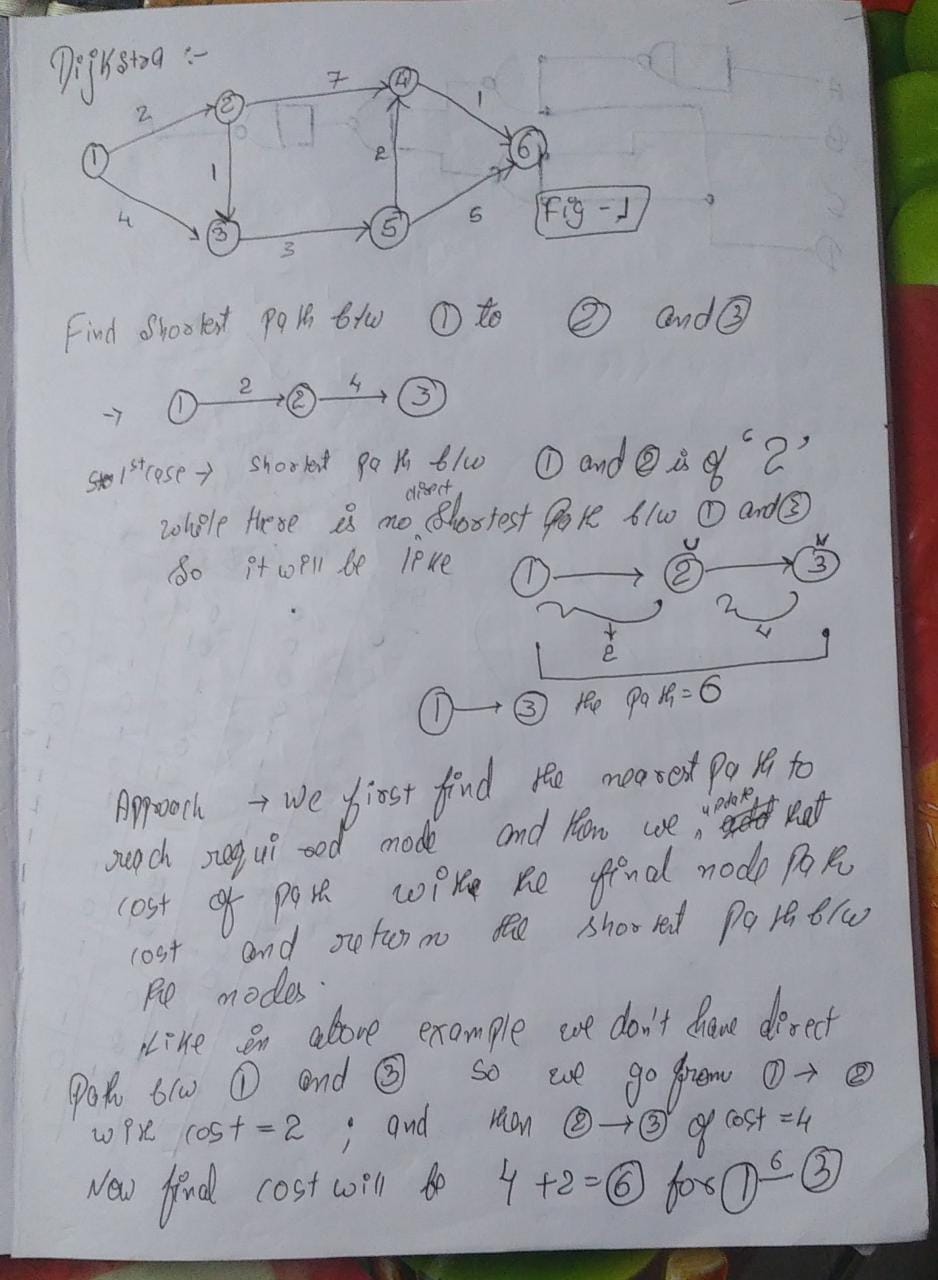 Dijkstra :-
2 7 1
1 2 4 6
4 1 2 5
3 3 5
Fig - 1
Find Shortest path b/w ① to ② and ③
→ ① 2 ② 4 ③
1st case → shortest path b/w ① and ② is of '2'
while there is no direct shortest path b/w ① and ③
So it will be like ① → ② → ③
2 4
① → ③ the path = 6
Approach → we first find the nearest path to
reach required node and then we update that
cost of path with the final node path
cost and return the shortest path b/w
the nodes.
Like in above example we don't have direct
path b/w ① and ③ so we go from ① → ②
with cost = 2 ; and then ② → ③ of cost = 4
Now final cost will be 4 + 2 = ⑥ for ① 6 ③